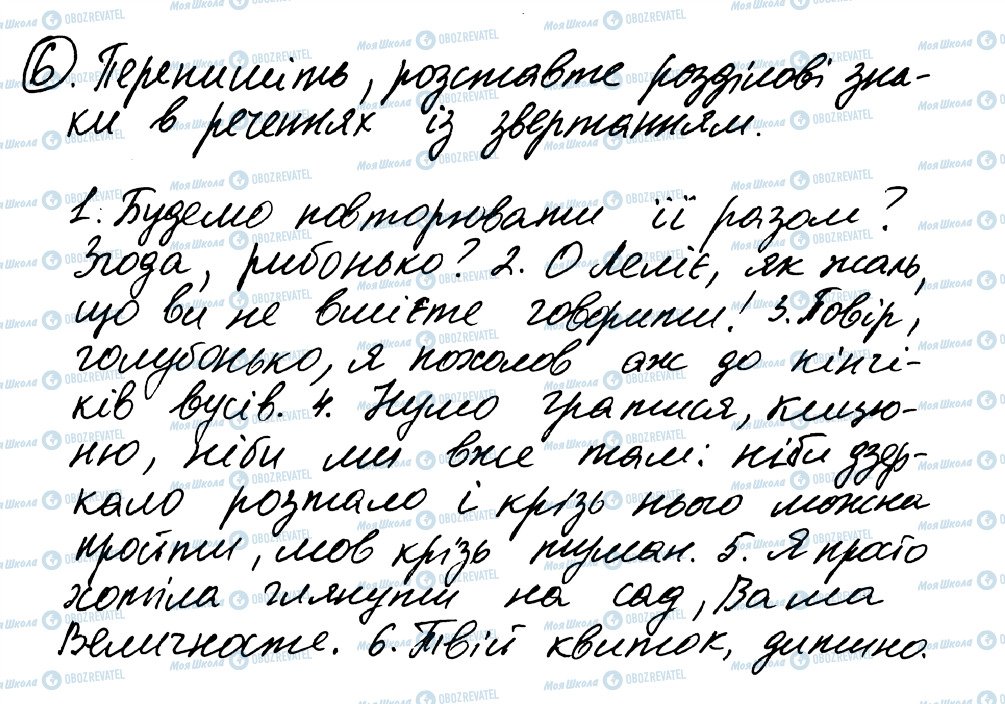 6. Перепишіть, розставте розділові зна-
ки в реченнях із звертанням.
1. Будемо повторювати її разом?
Згода, рибонько? 2. О Леліє, як жаль,
що ви не вмієте говорити! 3. Повір,
голубонько, я похолов аж до кінчи-
ків вусів. 4. Нумо гратися, кицю-
ню, ніби ми вже там: ніби дзер-
кало розтало і крізь нього можна
пройти, мов крізь туман. 5. Я просто
хотіла глянути на сад, Ваша
Величносте. 6. Твій квиток, дитино.